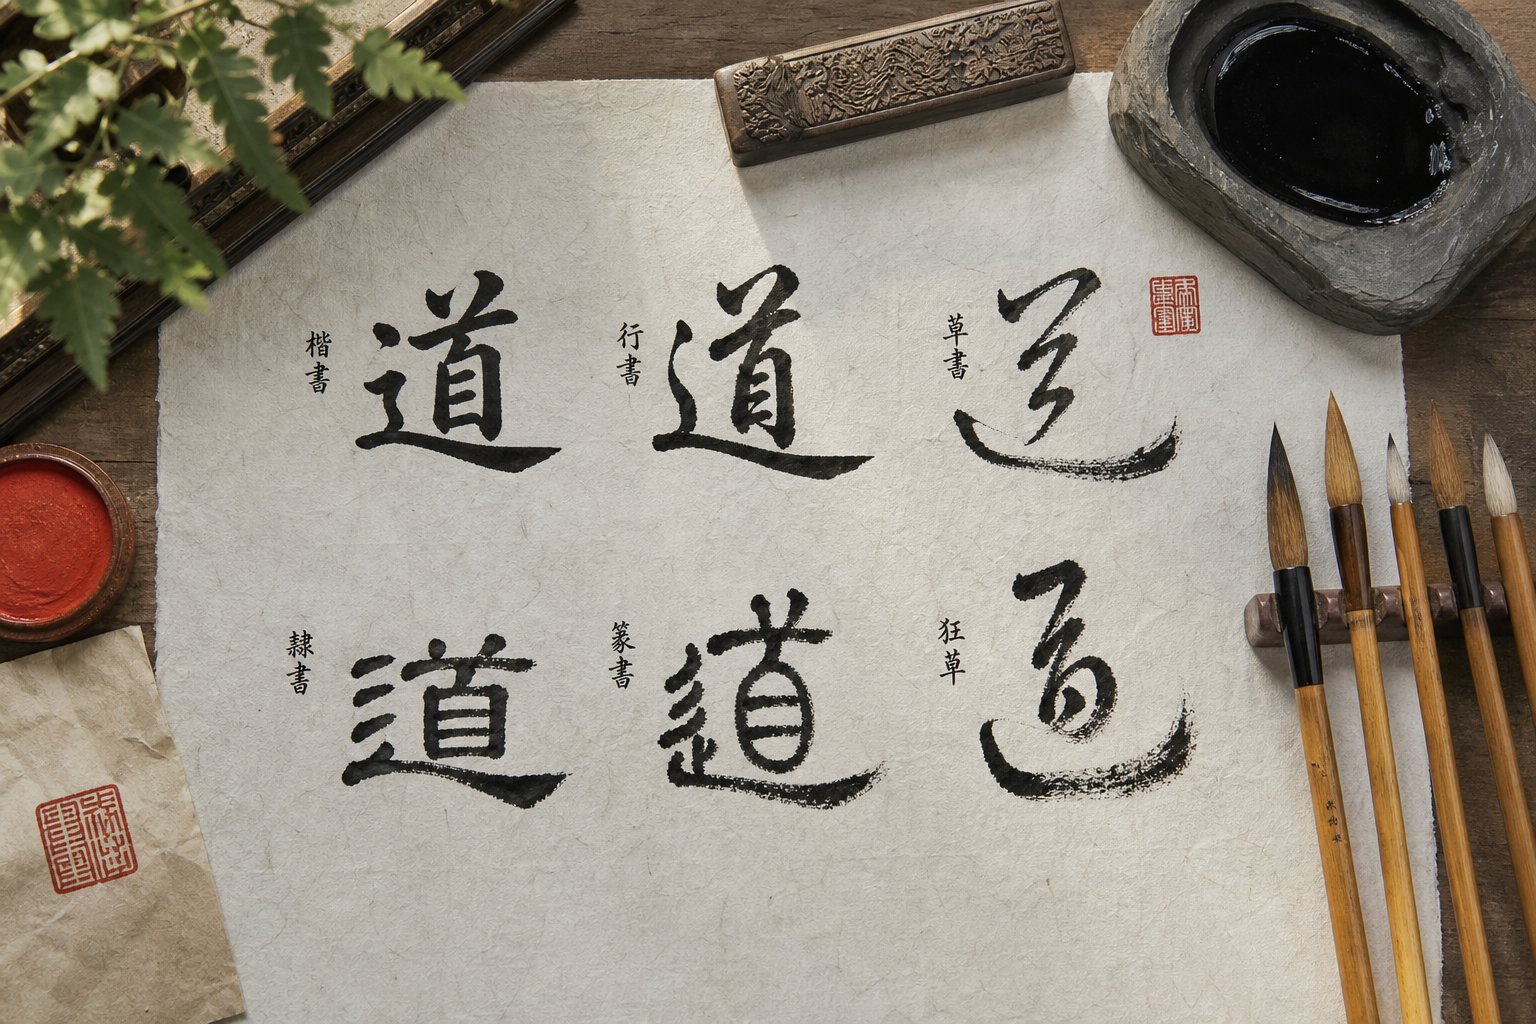 楷書
道
行書
道
草書
道
隸書
道
篆書
道
狂草
道